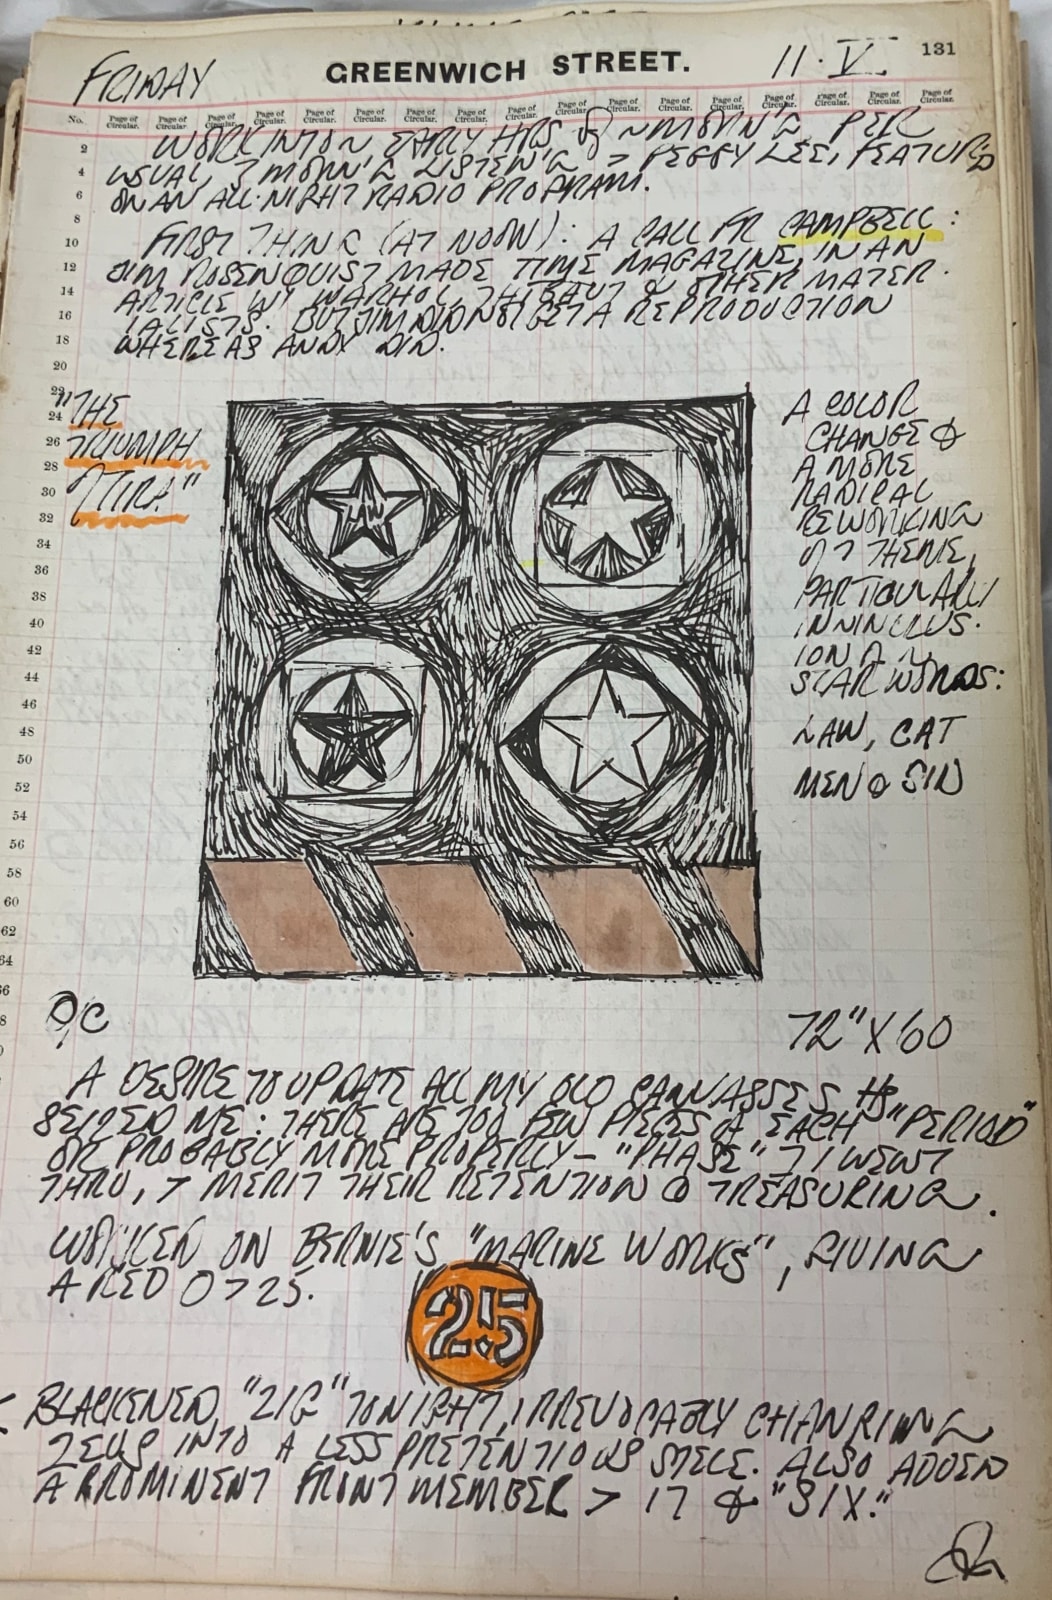 131
FRIDAY GREENWICH STREET. 11·V
No. Page of Circular. Page of Circular. Page of Circular. Page of Circular. Page of Circular. Page of Circular. Page of Circular. Page of Circular. Page of Circular. Page of Circular. Page of Circular. Page of Circular. Page of Circular. Page of Circular. Page of Circular. Page of Circular. Page of Circular.
WORK INTO EARLY HRS OF MORN'G, PER
USUAL, MORN'G LISTEN'G > PEGGY LEE, FEATUR'D
ON AN ALL-NIGHT RADIO PROGRAM.
FIRST THING (AT NOON): A CALL FR CAMPBELL:
JIM ROSENQUIST MADE TIME MAGAZINE, IN AN
ARTICLE W/ WARHOL, THIBAUT & OTHER MATER-
IALISTS. BUT JIM DID NOT GET A REPRODUCTION
WHEREAS ANDY DID.
2
4
6
8
10
12
14
16
18
20
22
24
26
28
30
32
34
36
38
40
42
44
46
48
50
52
54
56
58
60
62
64
66
"THE
TRIUMPH
TIRA"
LAW
A COLOR
CHANGE &
A MORE
RADICAL
REWORKING
THEME,
PARTICULARLY
IN INCLUS-
ION
STAR WORDS:
LAW, CAT
MEN & SIN
O/C
72" X 60
A DESIRE TO UPDATE ALL MY OLD CANVASSES HS
SEIZED ME: THERE ARE TOO FEW PIECES EACH "PERIOD"
OR PROBABLY MORE PROPERLY — "PHASE" I WENT
THRU, > MERIT THEIR RETENTION & TREASURING.
WORKED ON BERNIE'S "MARINE WORKS", GIVING
A RED O > 25.
25
BLACKENED "ZIG" TONIGHT, IRREVOCABLY CHANGING
ZEUS INTO A LESS PRETENTIOUS STELE. ALSO ADDED
A PROMINENT FRONT MEMBER > 17 & "SIX."